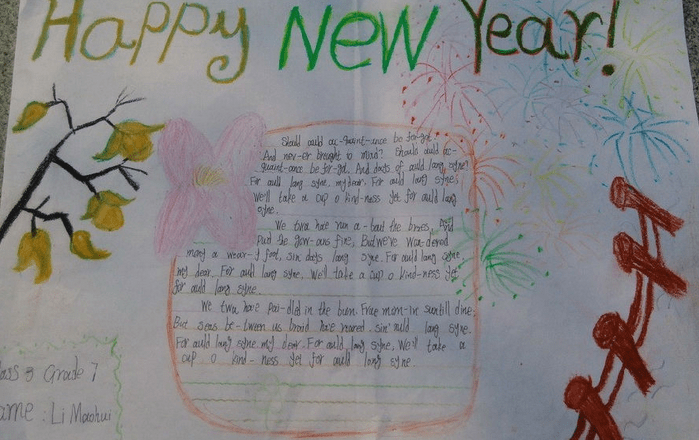 Happy New Year!
Should auld ac-quaint-ance be for-got
And nev-er brought to mind? Should auld ac-
quaint-ance be for-got. And days of auld lang syne?
For auld lang syne. my dear. For auld lang syne.
We'll take a cup o kind-ness yet for auld lang
syne.
We twa have run a-bout the braes, And
pu'd the gow-ans fine, But we've wan-dered
many a wear-y foot, sin days lang syne. For auld lang syne.
my dear. For auld lang syne. We'll take a cup o kind-ness yet
for auld lang syne.
We twa have pai-dled in the burn. Frae morn-in sun till dine.
But seas be-tween us braid have roared sin' auld lang syne.
For auld lang syne my dear. For auld lang syne, We'll take a
cup o kind-ness yet for auld lang syne
ass 3 Grade 7
ame: Li Maohui